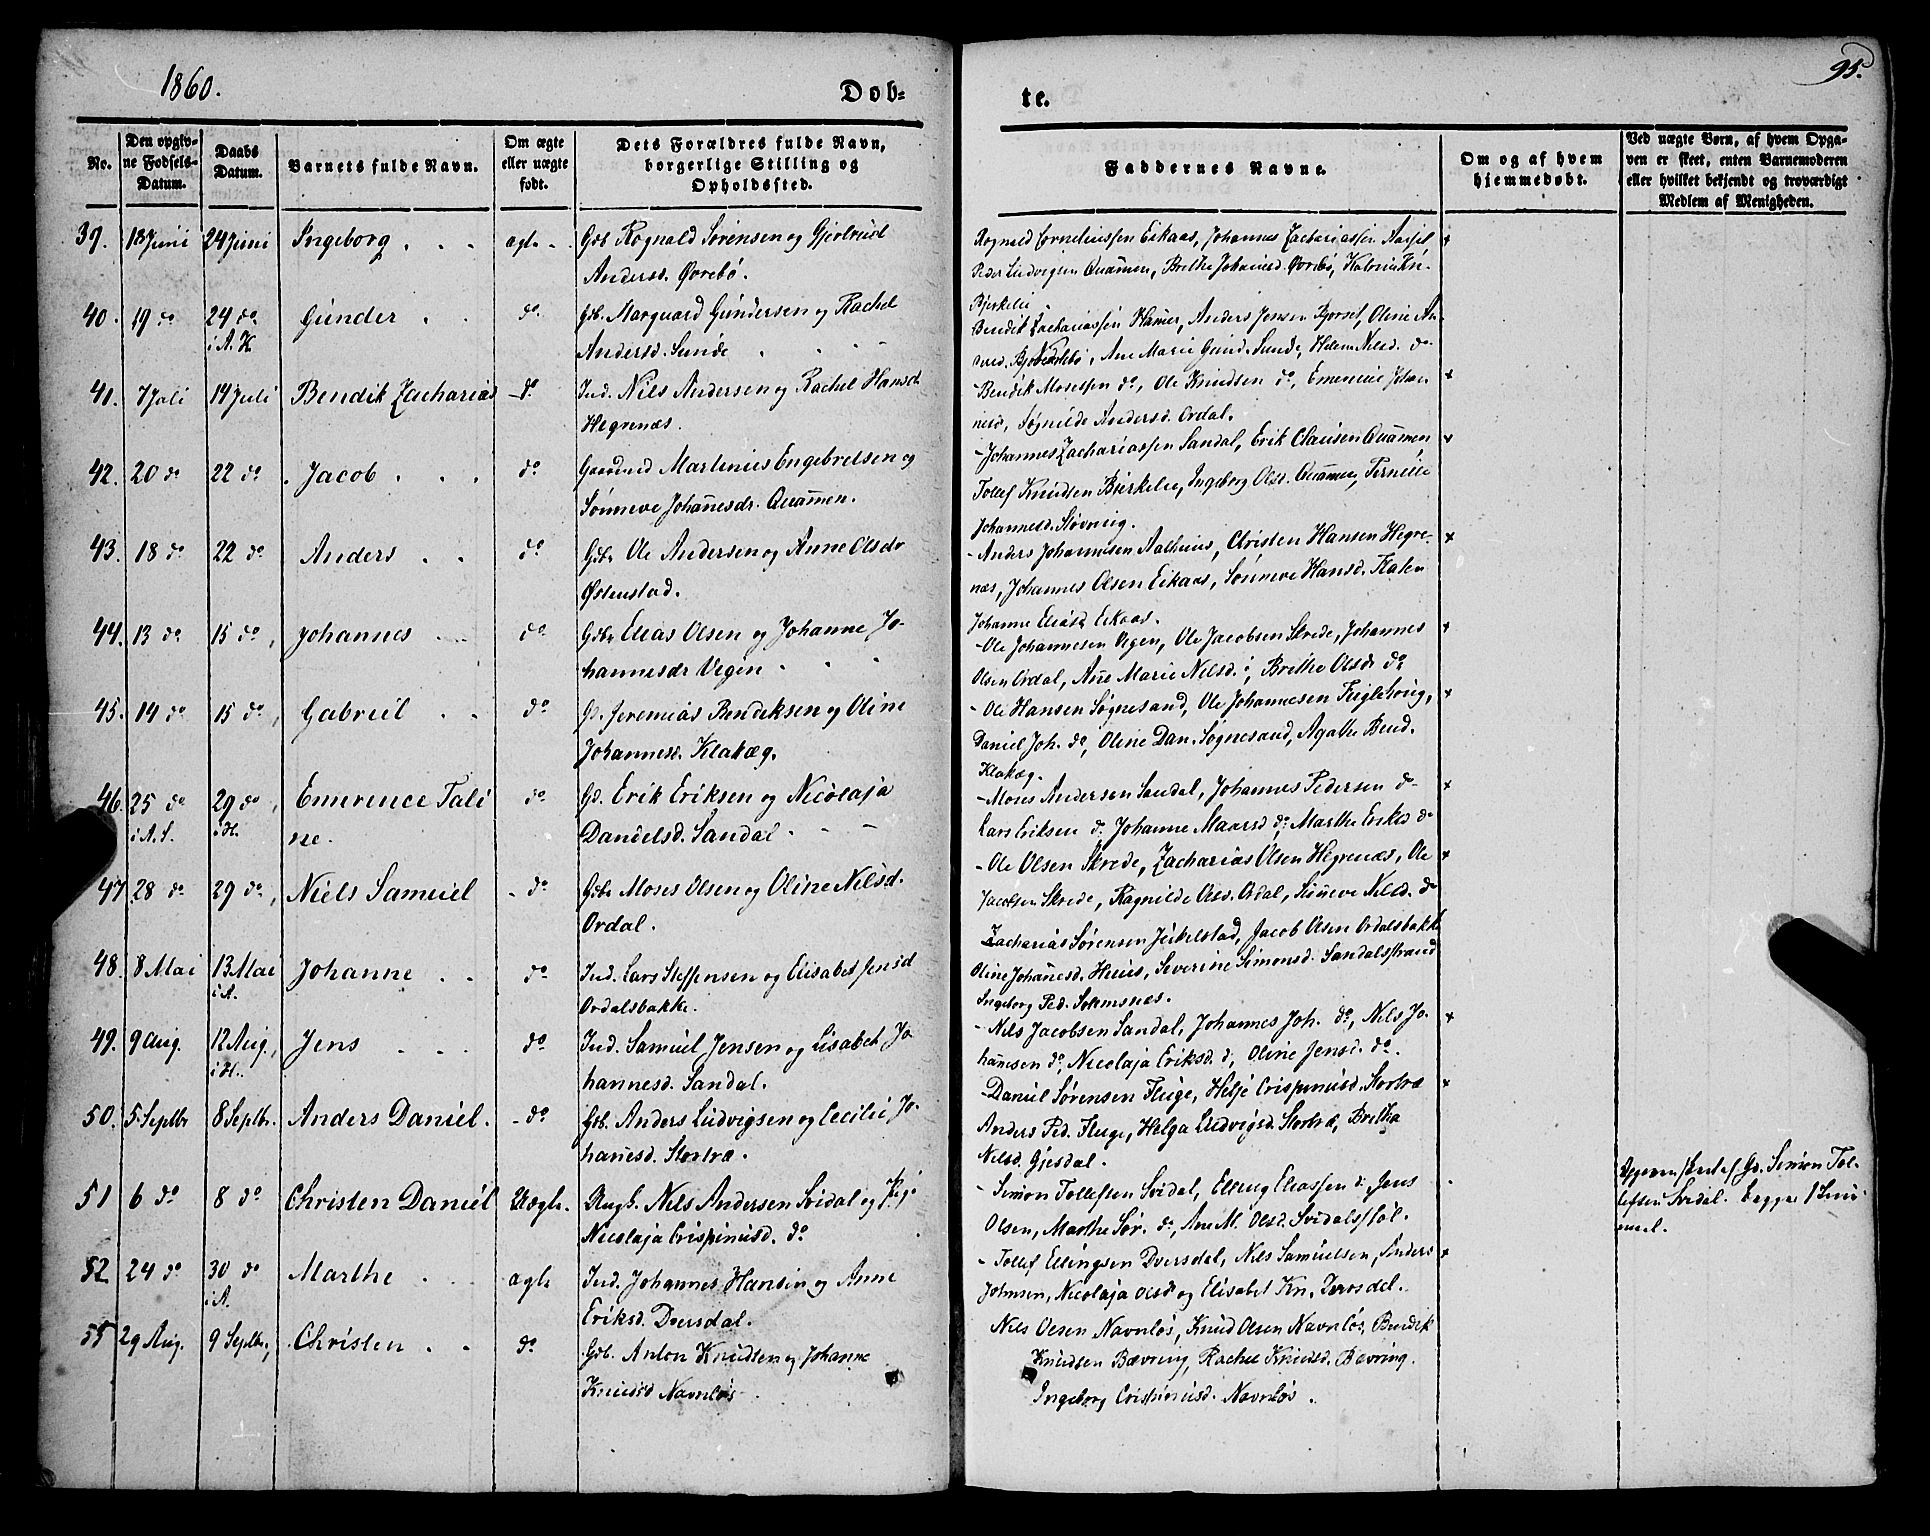 1860.
Dob-
te.
95.
No.
Den opgiv-
ne Fødsels-
Datum.
Daabs
Datum.
Barnets fulde Navn.
Om ægte
eller uægte
født.
Dets Forældres fulde Navn,
borgerlige Stilling og
Opholdssted.
Faddernes Navne.
Om og af hvem
hjemmedøbt.
Ved uægte Børn, af hvem Opga-
ven er skeet, enten Barnemoderen
eller hvilket bekjendt og troværdigt
Medlem af Menigheden.
39. 18 Juni 24 Juni Ingeborg ægte Gdb Rognald Sørensen og Gjertrud
Andersd. Øvrebø.
Rognald Corneliussen Eikaas, Johannes Zachariassen Aarset
Peder Ludvigsen Quamen, Brithe Johannesd. Øvrebø, Katrine Kri-
Bjerkelie
40. 19 do 24 do Gunder do Gdb. Marquard Gundersen og Rachel
i A. K. Andersd. Sunde
Bendik Zachariassen Hamer, Anders Jensen Bjorset, Oline An-
Ane Marie Gund. Sunde, Helene Nilsd. do
41. 7 Juli 14 Juli Bendik Zacharias do Ind. Nils Andersen og Rachel Hansd
Hegrenæs.
Bendik Mosessen do, Ole Knudsen do, Emerence Johan
nesd, Søgnilde Andersd. Ordal.
42. 20 do 22 do Jacob do Gaardmd Martinus Engebretsen og
Sønneve Johannesdr. Quamen.
Johannes Zachariassen Sandal, Erik Clausen Quamen
Tollef Knudsen Bjerkelie, Ingeborg Olsd. Quamen, Pernille
Johannesd. Støvneig.
43. 18 do 22 do Anders do Gdbr Ole Andersen og Anne Olsdr
Østenstad.
Anders Johannesen Aalhuus, Christen Hansen Hegre-
næs, Johannes Olsen Eikaas, Sønneve Hansd.
Johanne Eliasd. Eikaas.
44. 13 do 15 do Johannes do Gdbr Elias Olsen og Johanne Jo-
hannesdr Vegen
Ole Johannesen Vegen, Ole Jacobsen Skrede, Johannes
Olsen Ordal, Ane Marie Nilsd. Brithe Olsdr do
45. 14 do 15 do Gabriel do Gd. Jeremias Bendiksen og Oline
Johannesd. Klakæg.
Ole Hansen Søgnesand, Ole Johannesen Fuglehoug,
Daniel Joh. do, Oline Dan. Sognesand, Agathe Bend.
Klakæg.
46. 25 do 29 do Emerence Tali do Gd. Erik Eriksen og Nicolaja
i A. S. i H. ne. Danielsd. Sandal
Moses Andersen Sandal, Johannes Pedersen do
Lars Eriksen do Johanne Maarsd do Marthe Eriksd do
47 28 do 29 do Niels Samuel do Gdbr Moses Olsen og Oline Nilsd.
Ordal.
Ole Olsen Skrede, Zacharias Olsen Hegrenæs, Ole
Jacobsen Skrede, Ragnilde Olsd. Ordal, Sønneve Nilsd. do
48. 8 Mai 13 Mai Johanne do Ind. Lars Steffensen og Elisabet Jensd
i A. Ordalsbakke.
Zacharias Sørensen Jeikelstad, Jacob Olsen Ordalsbakke
Oline Johanesd. Huus, Severine Simonsd. Sandalsstrand
Ingeborg Ped. Solemsnæs.
49. 9 Aug. 12 Aug. Jens do Ind. Samuel Jensen og Lisabet Jo
i H. hannesd. Sandal.
Nils Jacobsen Sandal, Johannes Joh. do, Nils Jo-
hanesen do, Nicolaja Eriksd. do, Oline Jensd. do.
50. 5 Septbr 8 Septbr. Anders Daniel. do Gdb. Anders Ludvigsen og Cecilie Jo-
hanesd. Stortræ.
Daniel Sørensen Fluge, Helje Crispinusd. Stortræ
Anders Ped. Fluge, Helga Ludvigsd. Stortræ, Britha
Nilsd. Gjesdal.
51 6 do 8 do Christen Daniel Uægte. Ungk. Nils Andersen Svidal og Pige
Nicolaja Crispinusd. do
Simon Tollefsen Svidal, Elling Eliassen do, Jens
Olsen, Marthe Sør. do, Ane M. Olsd. Svidalsstøl.
Opgiven skeet af Gd. Simon Tol-
lefsen Svidal. begges 1ste Leier
maal.
52 24 do 30 do Marthe ægte Ind. Johannes Hansen og Anne
i A. Eriksd. Dversdal.
Tollef Ellingsen Dversdal, Nils Samuelsen, Anders
Johnsen, Nicolaja Olsd og Elisabet Kn. Dversdal.
53 29 Aug. 9 Septbr, Christen do Gdb. Anton Knudsen og Johanne
Knudsd Navnløs
Nils Olsen Navnløs, Knud Olsen Navnløs, Bendik
Knudsen Bævring, Rachel Knudsd. Bævring.
Ingeborg Cristinusd. Navnløs.